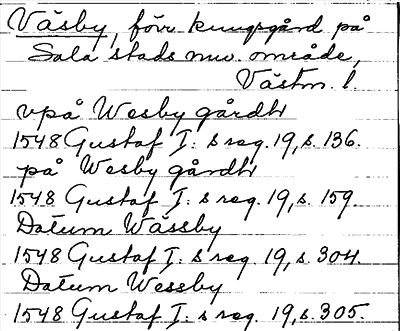 Väsby, förr kungsgård på
Sala stads nuv. område,
Västm. l.
vpå Wesby gårdh
1548 Gustaf I: s reg. 19, s. 136.
på Wesby gårdh
1548 Gustaf I: s reg. 19, s. 159.
Datum Wässby
1548 Gustaf I: s reg. 19, s. 304.
Datum Wessby
1548 Gustaf I: s reg. 19, s. 305.